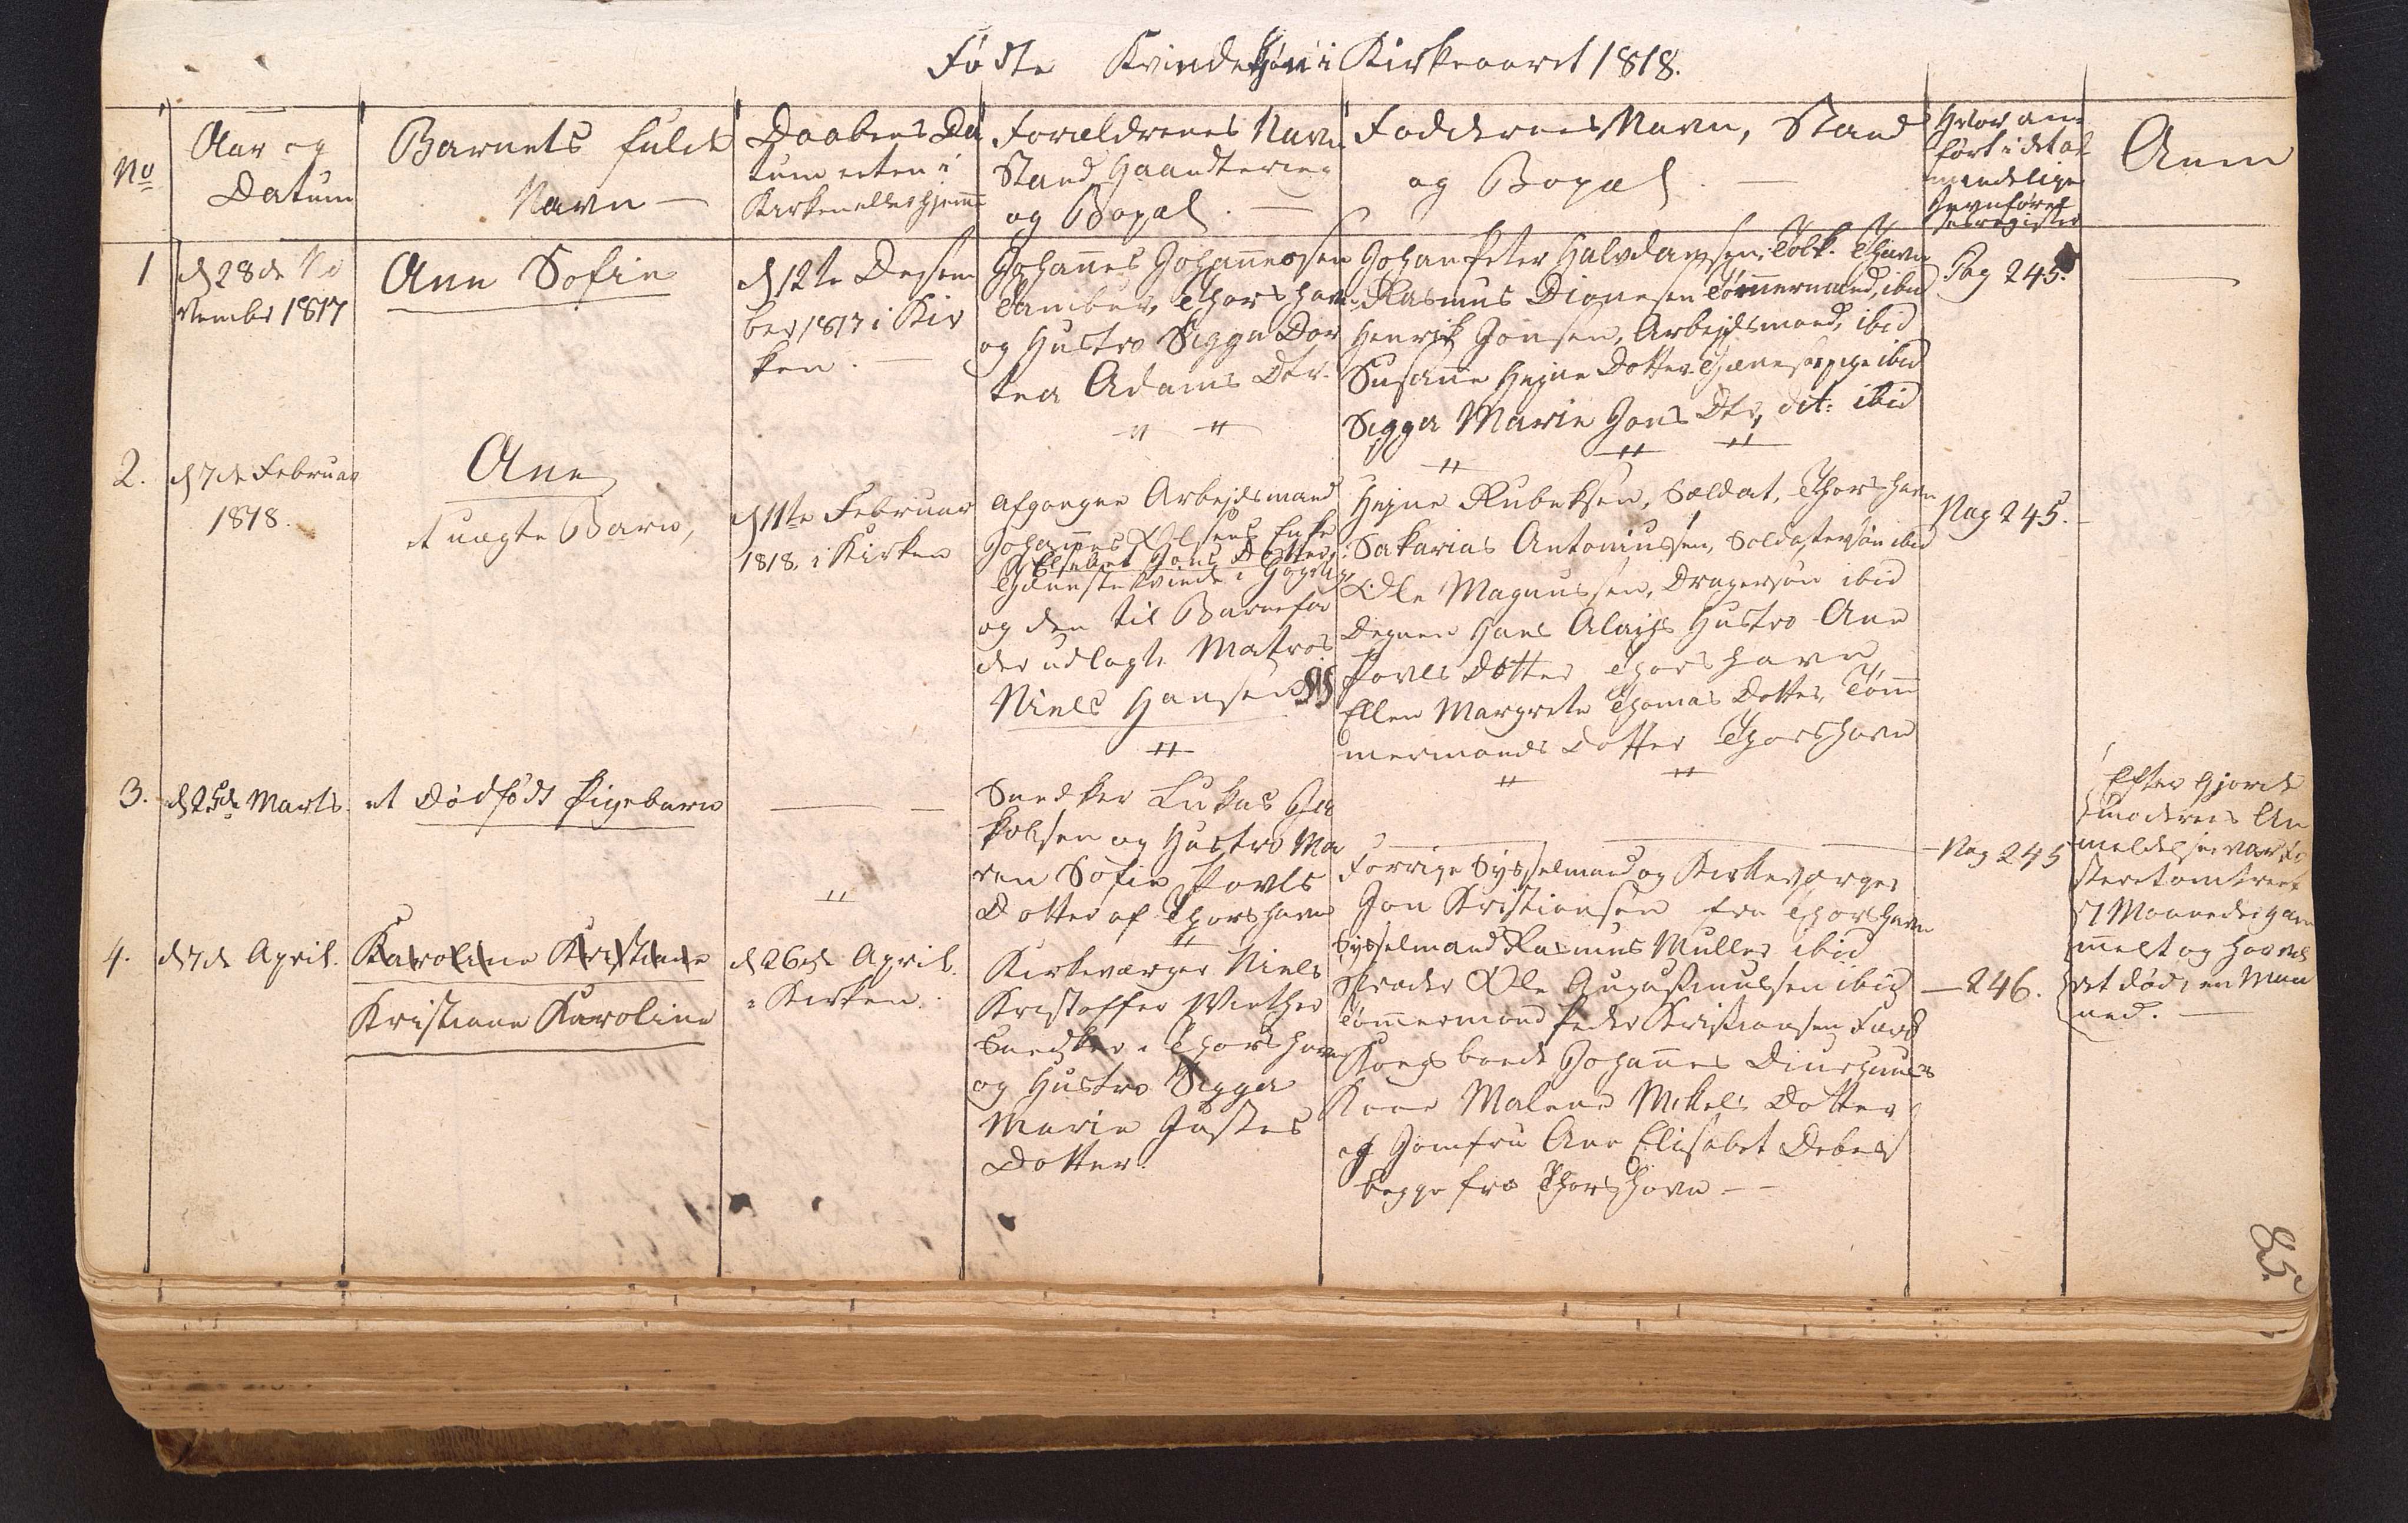 Fødte Kvindekøn i Kirkeaaret 1818.
No
Aar og
Datum
Barnets fulde
Navn —
Daabens Da
tum enten i
Kirken eller hjemme
Forældrenes Navn
Stand Haandtering
og Bopæl. —
Faddernes Navn, Stand
og Bopæl. —
Hvor an¬
ført i det al
mindelige
Jevnførel
sesregister
Anm
1
d 28de No
vember 1817
Ane Sofie
d 12te Desem
ber 1817 i Kir
ken. —
Johannes Johannesen
Tambur, Thorshavn
og Hustro Sigga Dor
tea Adams Dtr.
Johan Peter Halvdansen, Tolk. Thavn
Rasmus Dionesen Tømmermand, ibid
Henrik Jonsen, Arbejdsmand, ibid
Susanne Hejne Dotter Tjenestepige ibid
Sigga Marie Jons Dtr, dit: ibid
Pag 245.
2.
d 7de Februar
1818.
Ane
et uægte Barn,
d 11te Februar
1818. i Kirken
Afgangne Arbejdsmand
Johannes Olsens Enke
Elsebet Jons Dotter,
Tjenestekvinde i
og den til Barnefa
der udlagte Matros
Niels Hansen
Hejne Rubeksen, Soldat, Thorshavn
Sakarias Antoniussen, Soldatersøn ibid
Ole Magnussen, Dragersøn ibid
Degnen Hans Hustro Ane
Povls Dotter Thorshavn
Ellen Margrete Thomas Dotter, Tøm
mermands Dotter Thorshavn
Pag 245.
3.
d 25de Marts.
et dødfødt Pigebarn
Snedker Lukas Ja
kobsen og Hustro Ma
ren Sofie Povls
Dotter af Thorshavn
Pag 245
Efter Gjorde
moderens An
meldelse var Fo
steret omtrent
7 Maaneder gam
melt og havde
været død en Maa
ned. —
4.
d 7de April.
Karoline Kristiane
Kristiane Karoline
d 26de April.
i Kirken.
Kirkeværger Niels
Kristoffer Winther
Snedker i Thorshavn
og Hustro Sigga
Marie Justes
Dotter.
Forrige Sysselmand og Kirkeværger
Jon Kristiansen fra Thorshavn
Sysselmand Rasmus Muller ibid
Ole Augustinussen ibid
Tømmermand Peder Kristiansen
Kongsbonde Johannes Diurhuus
Kone Malene Mikkels Dotter
og Jomfru Ane Elisabet Debes
begge fra Thorshavn —
— 246.
85